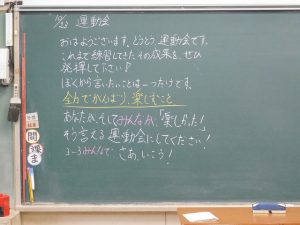 10/22 運動会
おはようございます。とうとう、運動会です。
これまで練習してきたその成果を、ぜひ
発揮して下さい!
ぼくから言いたいことは一つだけです。
全力でがんばり、楽しむこと
あなたが、そしてみんなが、「楽しかった!」
そう言える運動会にしてください!
3-3みんなで、さあ、いこう!
問
課
ま